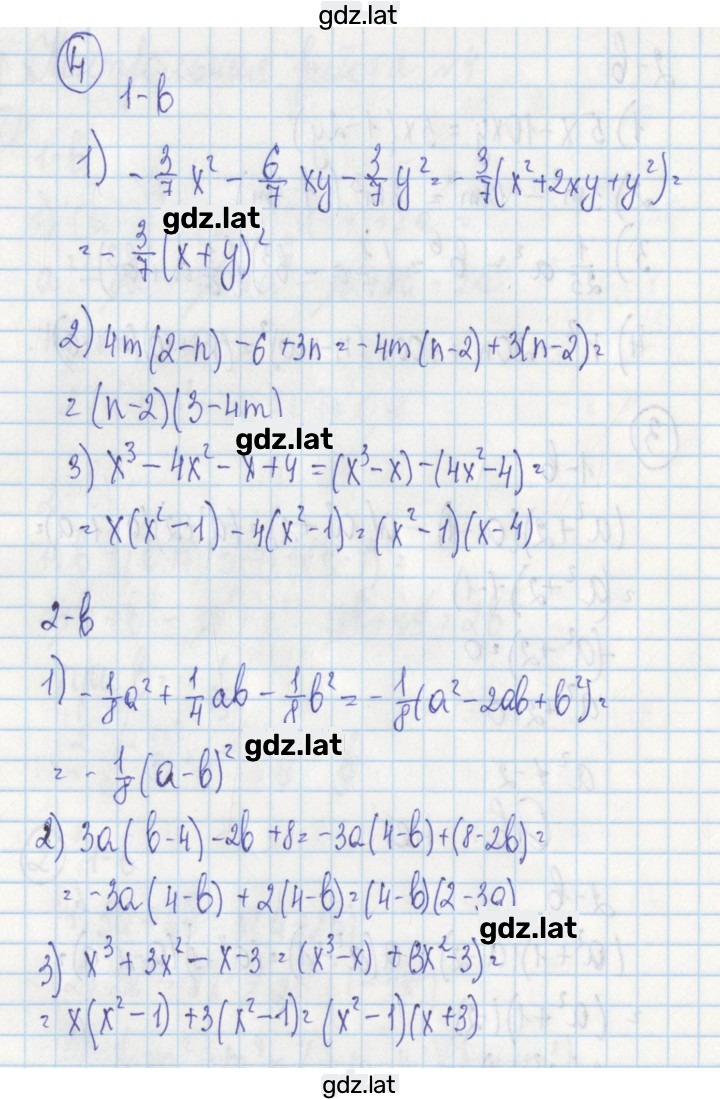 gdz.lat
4
1-в
1) - 3/7 x² - 6/7 xy - 3/7 y² = - 3/7 (x² + 2xy + y²) =
gdz.lat
= - 3/7 (x + y)²
2) 4m(2-n) - 6 + 3n = -4m(n-2) + 3(n-2) =
= (n-2)(3-4m)
gdz.lat
3) x³ - 4x² - x + 4 = (x³ - x) - (4x² - 4) =
= x(x² - 1) - 4(x² - 1) = (x² - 1)(x - 4)
2-в
1) - 1/8 a² + 1/4 ab - 1/8 b² = - 1/8 (a² - 2ab + b²) =
gdz.lat
= - 1/8 (a - b)²
2) 3a(b-4) - 2b + 8 = -3a(4-b) + (8-2b) =
= -3a(4-b) + 2(4-b) = (4-b)(2-3a)
gdz.lat
3) x³ + 3x² - x - 3 = (x³ - x) + (3x² - 3) =
= x(x² - 1) + 3(x² - 1) = (x² - 1)(x + 3)
gdz.lat